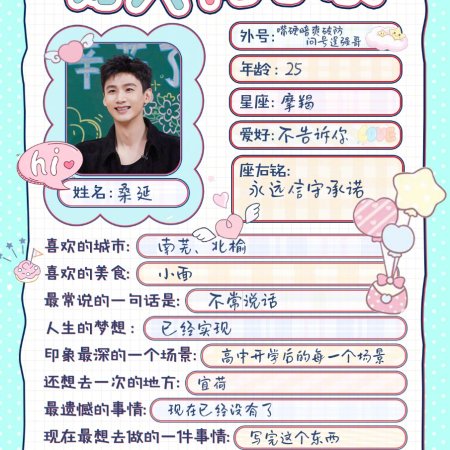 外号:嘴硬暗爽破防
问号逞强哥
年龄:25
星座:摩羯
爱好:不告诉你
LOVE
座右铭:
永远信守承诺
辛苦了
hi
姓名:桑延
喜欢的城市:南芜、北榆
喜欢的美食:小面
最常说的一句话是:不常说话
人生的梦想:已经实现
印象最深的一个场景:高中开学后的每一个场景
还想去一次的地方:宜荷
最遗憾的事情:现在已经没有了
现在最想去做的一件事情:写完这个东西